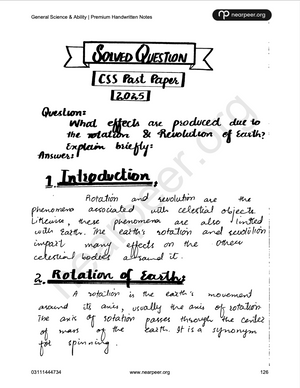 General Science & Ability | Premium Handwritten Notes
nearpeer.org
SOLVED QUESTION
CSS Past Paper
2025
Question:
What effects are produced due to
the rotation & Revolution of Earth?
Explain briefly:
Answer:
1. Introduction,
Rotation and revolution are the
phenomena associated with celestial objects.
Likewise, these phenomena are also linked
with Earth. The earth's rotation and revolution
impart many effects on the other
celestial bodies around it.
2. Rotation of Earth:
A rotation is the earth's movement
around its axis, usually the axis of rotation.
The axis of rotation passes through the center
of mass of the earth. It is a synonym
for spinning.
nearpeer.org
03111444734
www.nearpeer.org
126